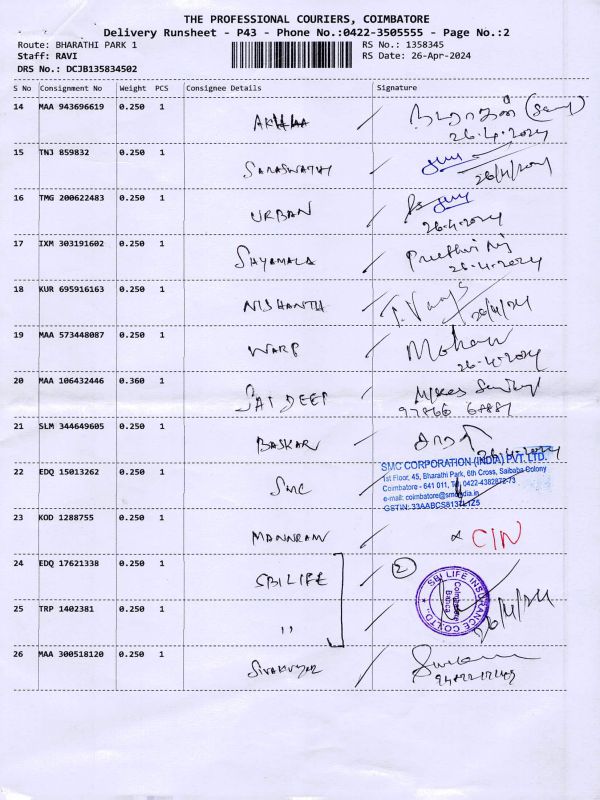 THE PROFESSIONAL COURIERS, COIMBATORE
Delivery Runsheet - P43 - Phone No.:0422-3505555 - Page No.:2
Route: BHARATHI PARK 1 RS No.: 1358345
Staff: RAVI RS Date: 26-Apr-2024
DRS No.: DCJB135834502
S No Consignment No Weight PCS Consignee Details Signature
14 MAA 943696619 0.250 1
26.4.2024
15 TNJ 859832 0.250 1 SARASWATHY
26/4/2024
16 TMG 200622483 0.250 1 URBAN
26.4.2024
17 IXM 303191602 0.250 1 SHYAMALA
26.4.2024
18 KUR 695916163 0.250 1 NISHANTH 26/4/24
19 MAA 573448087 0.250 1 WARP Mohan
26.4.2024
20 MAA 106432446 0.360 1 SAI DEEP
21 SLM 344649605 0.250 1 BASKAR
26.4.2024
22 EDQ 15013262 0.250 1 SMC
SMC CORPORATION (INDIA) PVT. LTD.
1st Floor, 45, Bharathi Park, 6th Cross, Saibaba Colony
Coimbatore - 641 011, Tel: 0422-4382872-73
e-mail: coimbatore@smcindia.in
GSTIN: 33AABCS8137L1Z5
23 KOD 1288755 0.250 1 MANNRAM CIN
24 EDQ 17621338 0.250 1 SBI LIFE 2
SBI LIFE INSURANCE CO.LTD.
Coimbatore
Banca
25 TRP 1402381 0.250 1 " 26/4/24
26 MAA 300518120 0.250 1 SIVAKUMAR